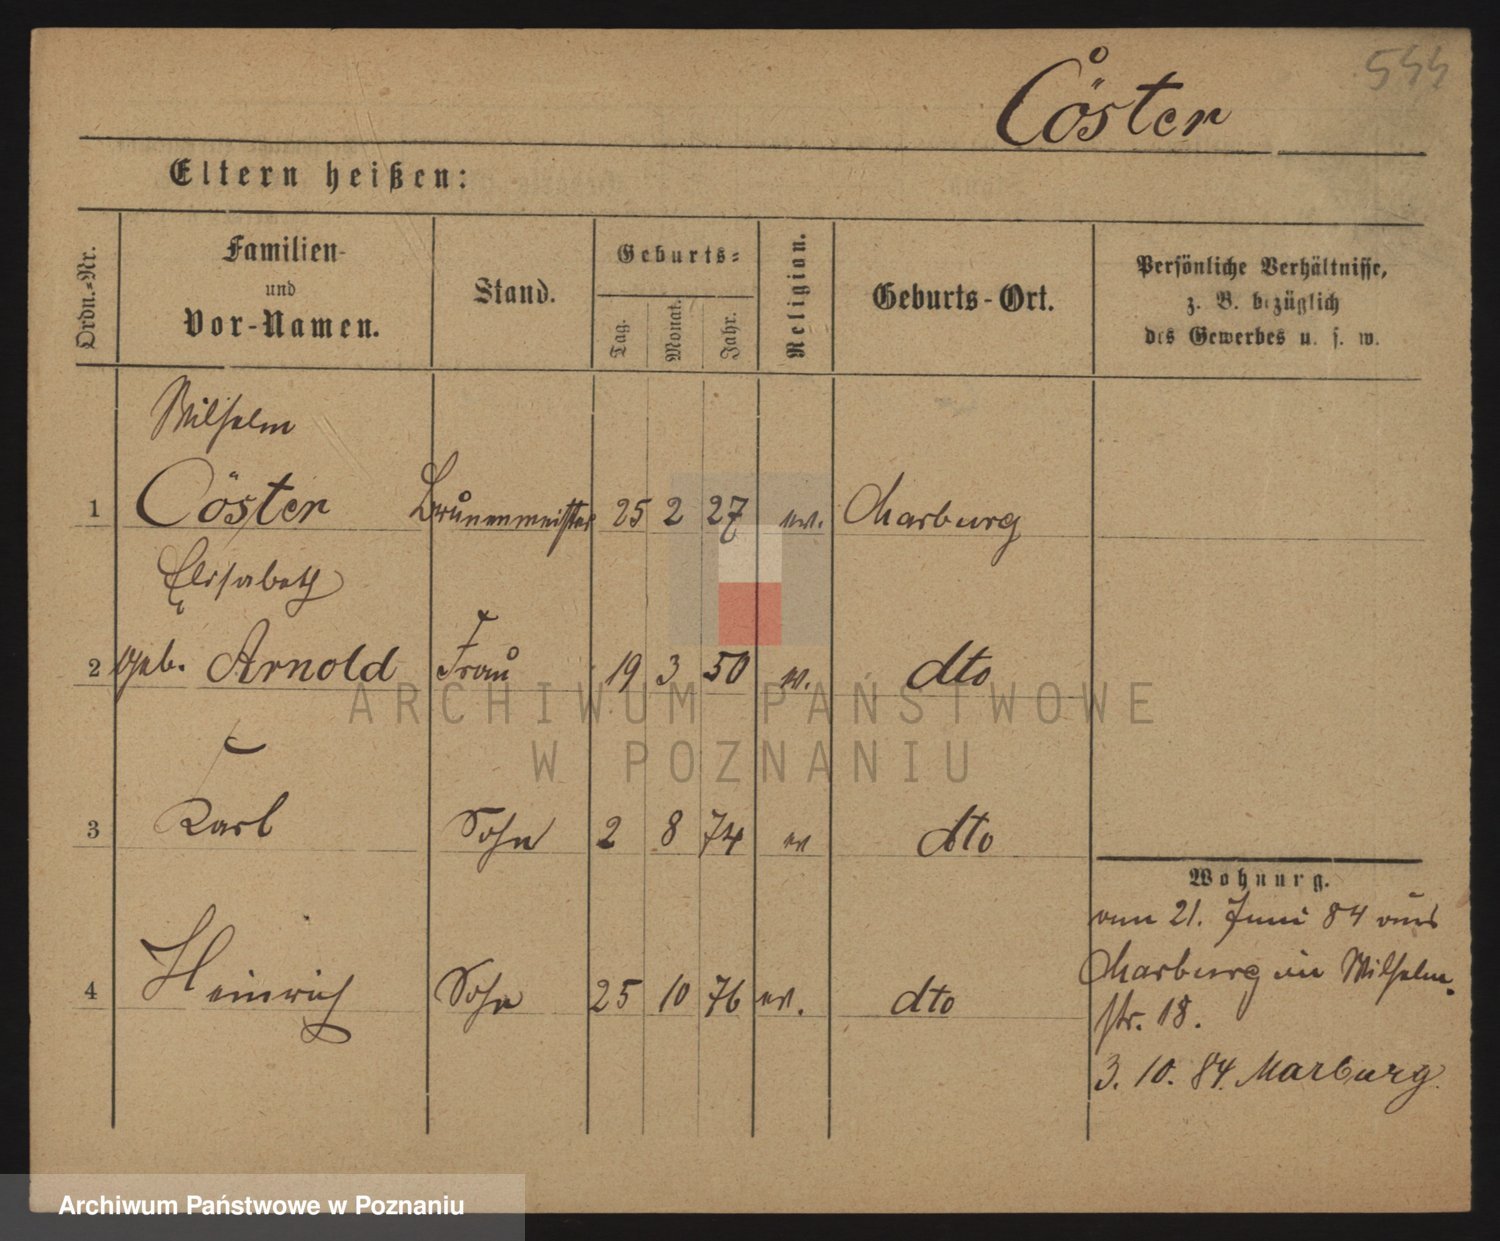 544
Cöster
Eltern heißen:
Ordn.-Nr.
Familien-
und
Vor-Namen.
Stand.
Geburts-
Tag.
Monat.
Jahr.
Religion.
Geburts-Ort.
Persönliche Verhältnisse,
z. B. bezüglich
des Gewerbes u. s. w.
Wilhelm
1 Cöster Brunenmeister 25 2 27 ev. Marburg
Elisabeth
2 geb. Arnold Frau 19 3 50 ev. dto
3 Karl Sohn 2 8 74 ev dto
4 Heinrich Sohn 25 10 76 ev. dto
Wohnung.
vom 21. Juni 84 aus
Marburg in Wilhelm-
str. 18.
3. 10. 84. Marburg.
ARCHIWUM PAŃSTWOWE
W POZNANIU
Archiwum Państwowe w Poznaniu